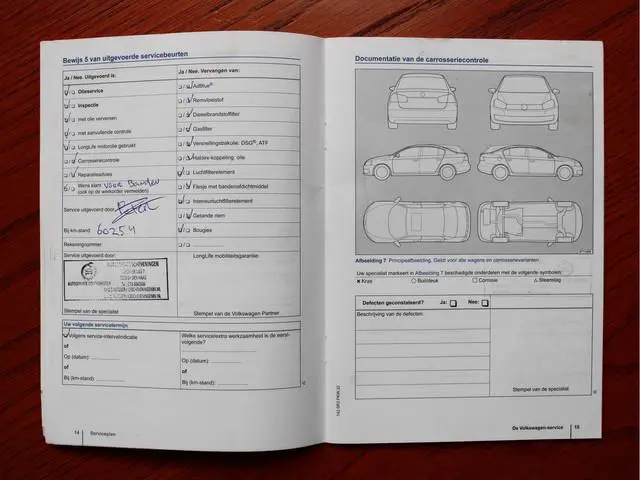 Bewijs 5 van uitgevoerde servicebeurten
Ja / Nee. Uitgevoerd is:
Olieservice
Inspectie
met olie verversen
met aanvullende controle
LongLife motorolie gebruikt
Carrosseriecontrole
Reparatieadvies
Wens klant: voor Banden
(ook op de werkorder vermelden)
Service uitgevoerd door:
Bij km-stand: 60254
Rekeningnummer:
Service uitgevoerd door:
Stempel van de specialist
Ja / Nee. Vervangen van:
AdBlue®
Remvloeistof
Dieselbrandstoffilter
Gasfilter
Versnellingsbakolie: DSG®, ATF
Haldex-koppeling: olie
Luchtfilterelement
Flesje met bandenafdichtmiddel
Interieurluchtfilterelement
Getande riem
Bougies
LongLife mobiliteitsgarantie:
Stempel van de Volkswagen Partner
Uw volgende servicetermijn
Volgens service-intervalindicatie
of
Op (datum):
of
Bij (km-stand):
Welke service/extra werkzaamheid is de eerst-
volgende?
Op (datum):
of
Bij (km-stand):
14 Serviceplan
Documentatie van de carrosseriecontrole
Afbeelding 7 Principeafbeelding. Geldt voor alle wagens en carrosserievarianten
Uw specialist markeert in Afbeelding 7 beschadigde onderdelen met de volgende symbolen:
× Kras ○ Buil/deuk □ Corrosie △ Steenslag
Defecten geconstateerd? Ja: Nee:
Beschrijving van de defecten:
Stempel van de specialist
De Volkswagen-service 15